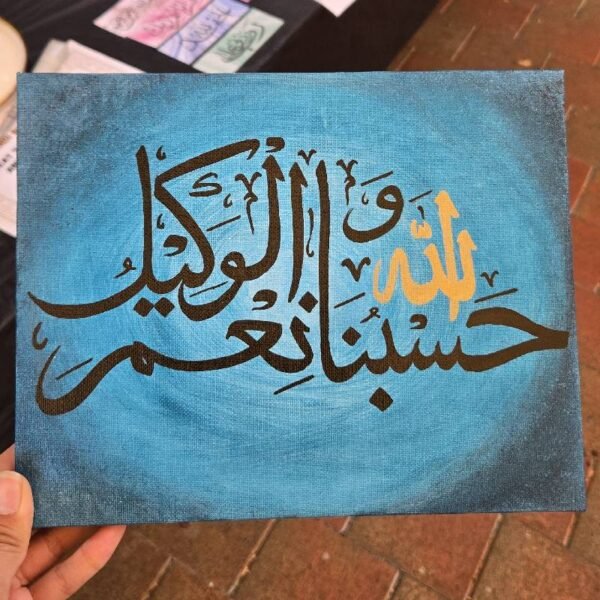 حَسْبُنَا الله وَ نِعْمَ الْوَكِيلُ